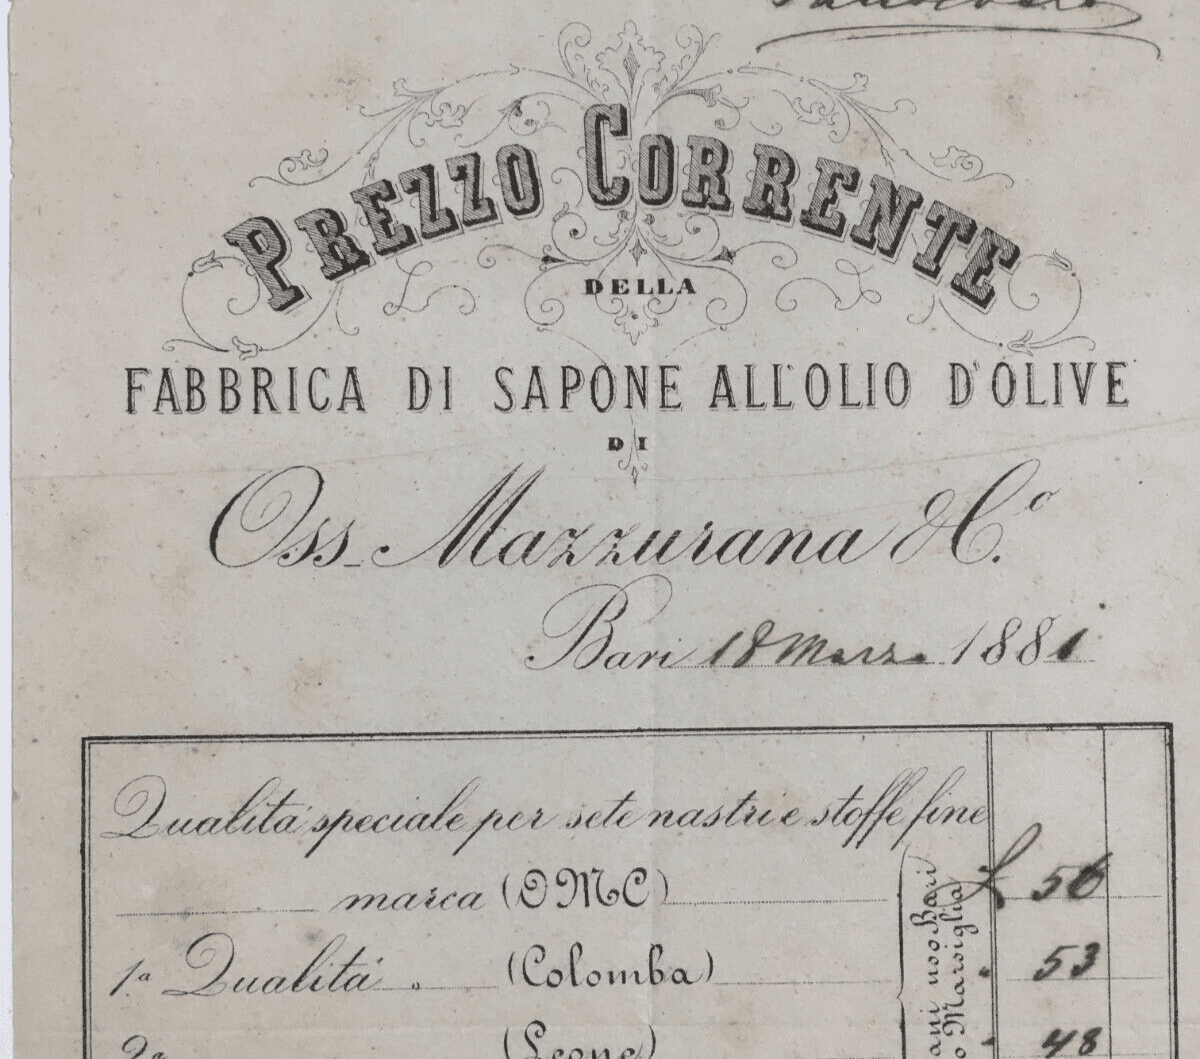 PREZZO CORRENTE
DELLA
FABBRICA DI SAPONE ALL'OLIO D'OLIVE
DI
Oss. Mazzurana & C.o
Bari 18 Marzo 1881
Qualitá speciale per sete nastri e stoffe fine
marca (OMC) £ 56
1a Qualitá „ (Colomba) „ 53
2a (Leone) „ 48
Bari
Marsiglia